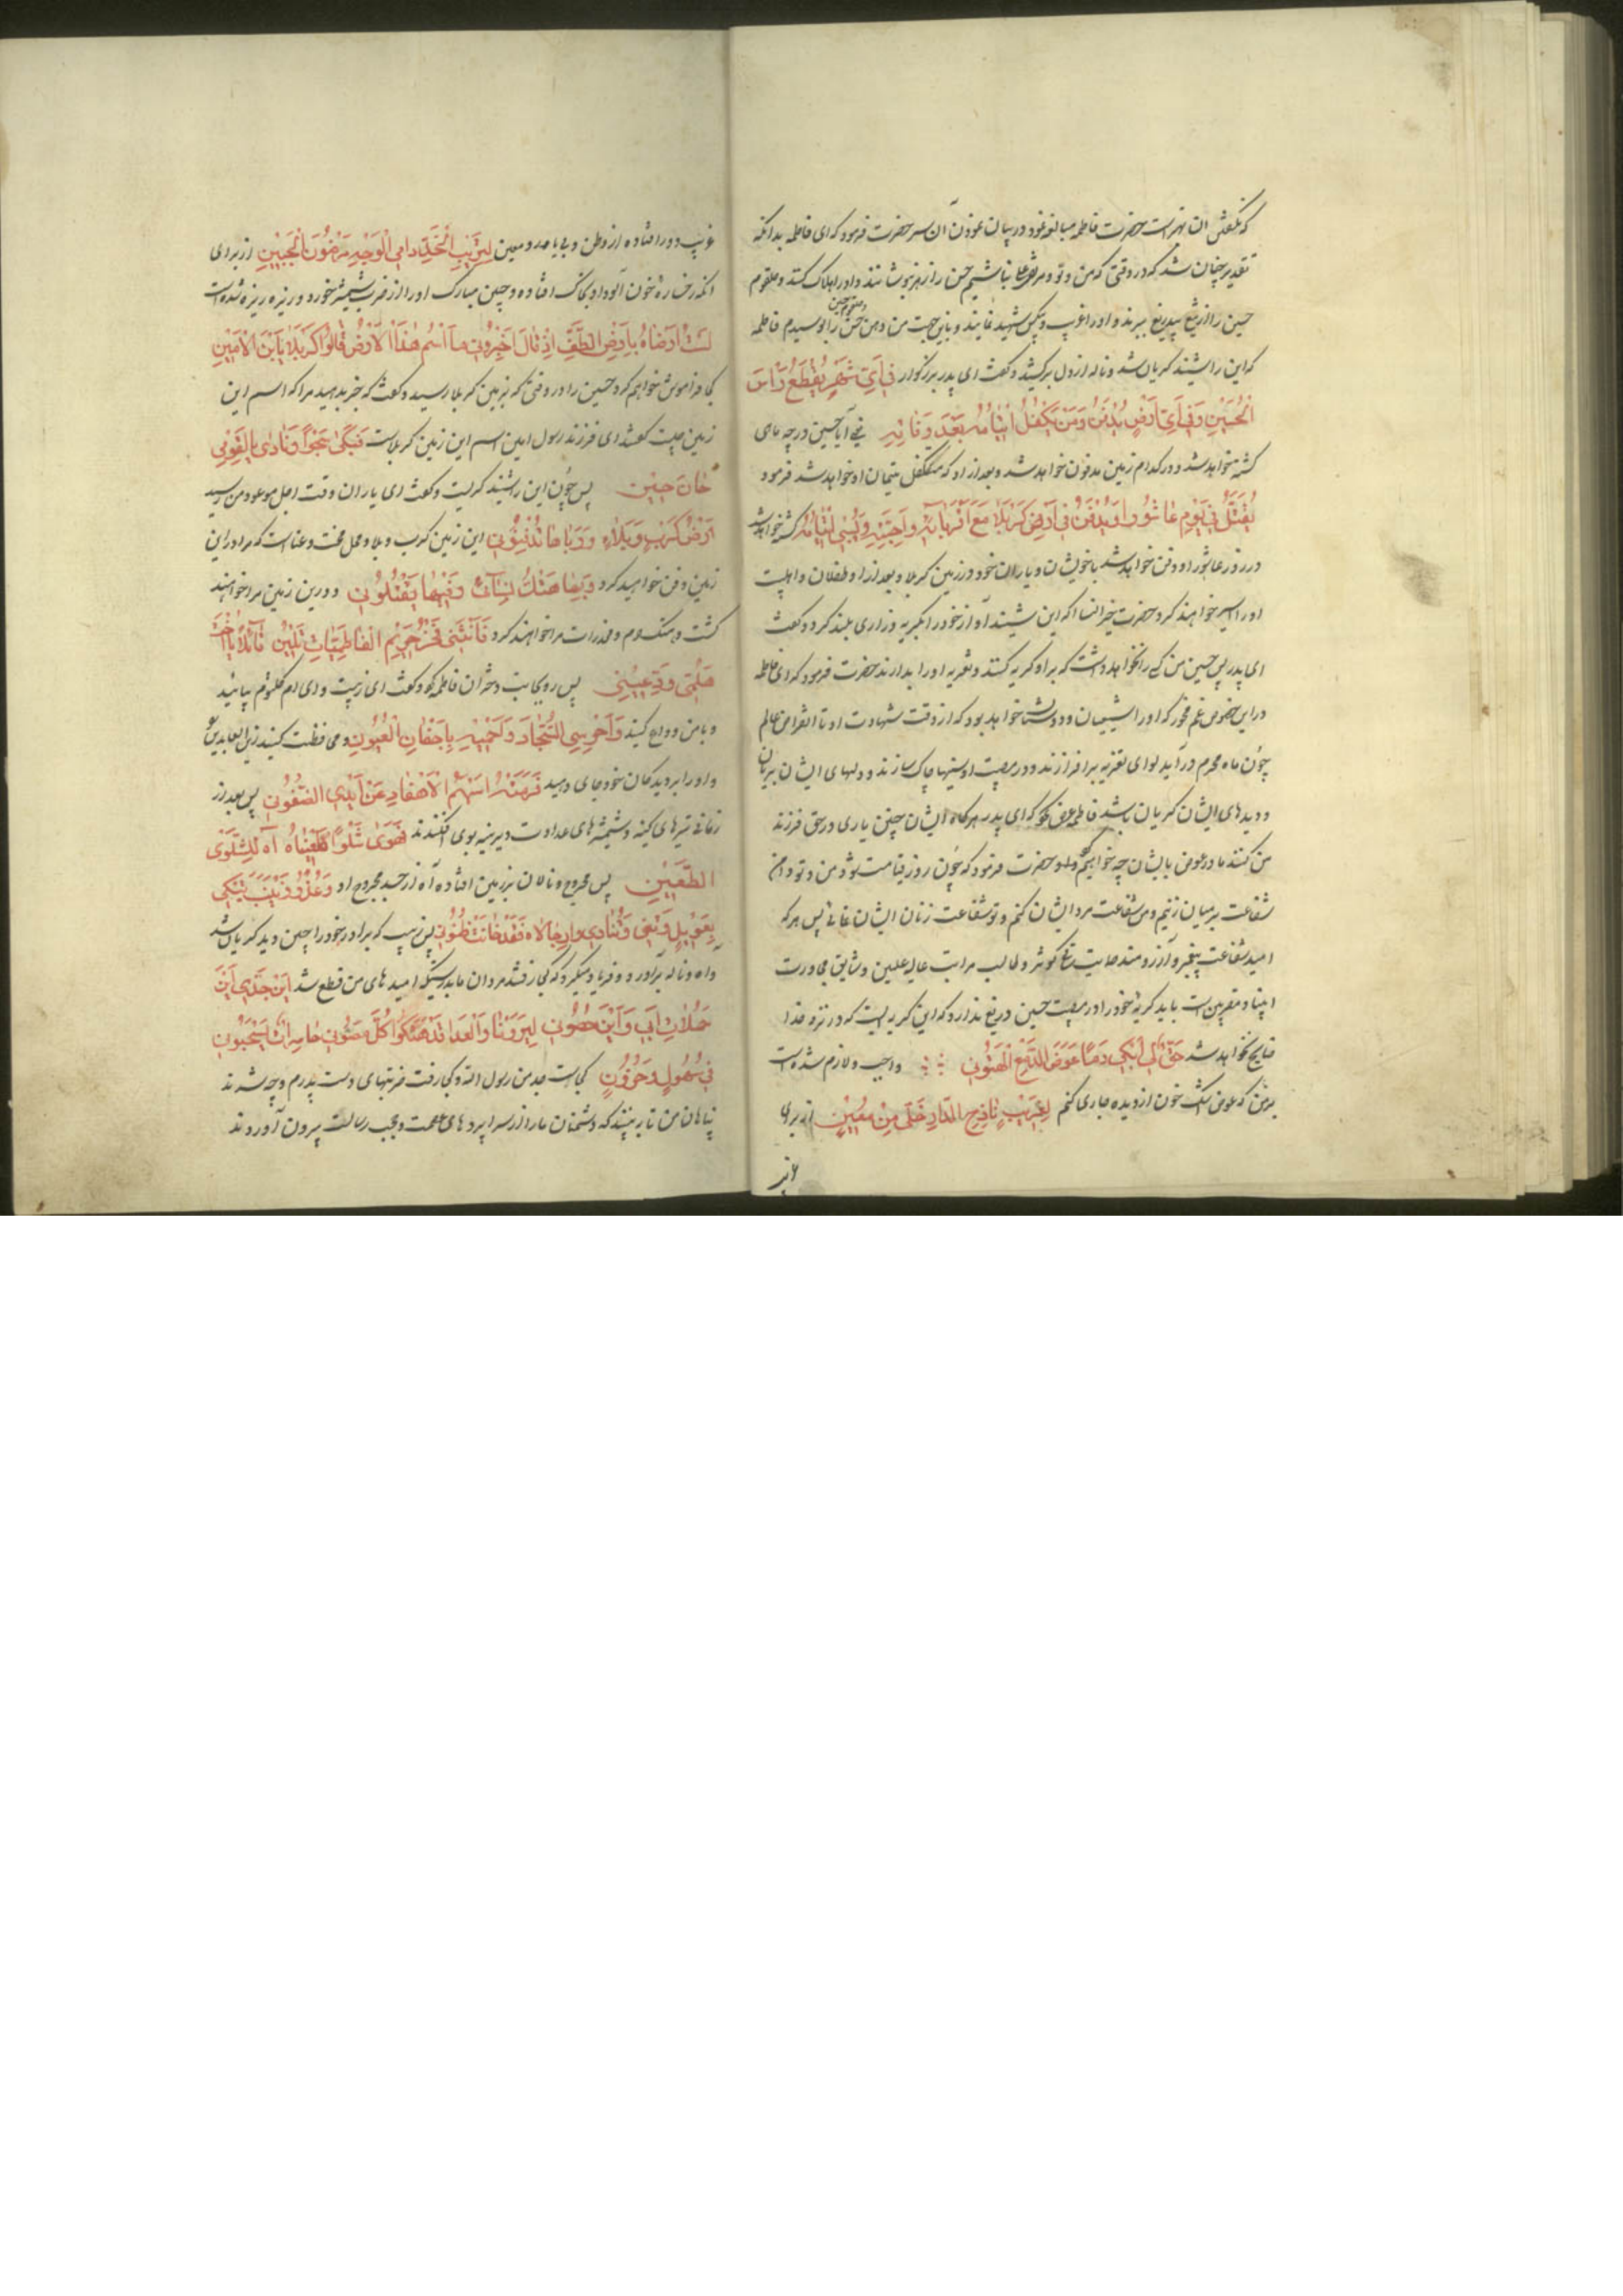 که نگفتن ان بهتر است حضرت فاطمه مبالغه نمود در بیان نمودن آن سر حضرت فرمود که ای فاطمه بدانکه
تقدیر چنان شد که در وقتی که من و تو و مرتضی علی نباشیم حسن را زهر بنوشانند و او را هلاک کنند و حلقوم
حسین را از تیغ بیدریغ ببرند و او را غریب و بیکس شهید نمایند و باین جهت من دهن حسن و حلقوم حسین را بوسیدم فاطمه
که این را شنید گریان شد و ناله از دل برکشید و گفت ای پدر بزرگوار فِی اَیِّ شَهْرٍ یُقْطَعُ رَاْسُ
الْحُسَیْنِ وَفِی اَیِّ اَرْضٍ یُدْفَنُ وَمَنْ یَکْفُلُ اَیْتَامَهُ بَعْدَ وَفَاتِهِ یعنی آیا حسین در چه ماهی
کشته خواهد شد و در کدام زمین مدفون خواهد شد و بعد از او که متکفل یتیمان او خواهد شد فرمود
یُقْتَلُ فِی یَوْمِ عَاشُورا وَیُدْفَنُ فِی اَرْضِ کَرْبَلَا مَعَ اَقْرِبَائِهِ وَاَحِبَّتِهِ وَیُسْبٰی اَیْتَامُهُ کشته خواهد شد
در روز عاشورا و دفن خواهد شد با خویشان و یاران خود در زمین کربلا و بعد از او طفلان و اهلبیت
او را اسیر خواهند کرد حضرت خیرالنسا که این شنید آواز خود را بگریه و زاری بلند کرد و گفت
ای پدر پس حسین من کسی را نخواهد داشت که بر او گریه کنند و تعزیه او را بدارند حضرت فرمود که ای فاطمه
در این خصوص غم مخور که او را شیعیان و دوستان خواهد بود که از وقت شهادت او تا انقراض عالم
چون ماه محرم درآید لوای تعزیه برافرازند و در مصیبت او سینها چاک سازند و دلهای ایشان بریان
و دیدهای ایشان گریان باشد فاطمه عرض کرد که ای پدر هرگاه ایشان چنین یاری در حق فرزند
من کنند ما در عوض بایشان چه خواهیم کرد حضرت فرمود که چون روز قیامت شود من و تو دامن
شفاعت بر میان زنیم و من شفاعت مردان ایشان کنم و تو شفاعت زنان ایشان نمائی پس هر که
امید شفاعت پیغمبر و آرزومند حمایت ساقی کوثر و طالب مراتب عالیه علیین و شایق مجاورت
انبیا و مقربین است باید گریه خود را در مصیبت حسین دریغ ندارد که این گریه ایست که در نزد خدا
ضایع نخواهد شد حَقَّ لِی اَبْکِی دَمًا عِوَضَ الدَّمْعِ الْهَتُونِ واجب و لازم شده است
بر من که عوض اشک خون از دیده جاری کنم لِغَرِیْبٍ نَازِحِ الدَّارِ خَلِیٍّ مِنْ مُعِیْنٍ از برای
غریب
غریب دور افتاده از وطن و بی یاور و معین لِتَرِیْبِ الْخَدِّ دَامِی الْوَجْهِ مَرْضُوْضِ الْجَبِیْنِ از برای
آنکه رخساره خون آلود او بخاک افتاده و جبین مبارک او از ضرب شمشیر خورد و ریزه ریزه شده است
لَسْتُ اَنْسَاهُ بِاَرْضِ الطَّفِّ اِذْ قَالَ اَخْبِرُوْنِی مَا اسْمُ هٰذَا الْاَرْضِ قَالُوا کَرْبَلَا یَابْنَ الْاَمِیْنِ
کی فراموش خواهم کرد حسین را در وقتی که بزمین کربلا رسید و گفت که خبر بدهید مرا که اسم این
زمین چیست گفتند ای فرزند رسول امین اسم این زمین کربلاست فَبَکٰی شَجْوًا وَنَادٰی یَالَقَوْمِی
حَانَ حِیْنِی پس چون این را شنید گریست و گفت ای یاران وقت اجل موعود من رسید
اَرْضُ کَرْبٍ وَبَلَاءٍ وَرُبَاهَا تُدْفِنُوْنِی این زمین کرب و بلا و محل محنت و عناست که مرا در این
زمین دفن خواهید کرد وَبِهَا هَتْکُ نِسَائِی وَفِیْهَا یَقْتُلُوْنِی و در این زمین مرا خواهند
کشت و هتک حرم و مخدرات مرا خواهند کرد فَانْثَنٰی نَحْوَ حَرِیْمِ الْفَاطِمِیَّاتِ قَائِلًا یَا اُخْتَ
هَلُمِّی وَدِّعِیْنِی پس رو بجانب دختران فاطمه کرد و گفت ای زینب و ای ام کلثوم بیائید
و با من وداع کنید وَاحْرِسِی السَّجَّادَ وَاحْمِیْهِ بِاَجْفَانِ الْعُیُوْنِ و محافظت کنید زین العابدین
و او را بر دیدگان خود جای دهید فَرَمَتْهُ اَسْهُمُ الْاَحْقَادِ عَنْ اَیْدِی الضُّغُوْنِ پس بعد از
زمانی تیرهای کینه و شمشیرهای عداوت دیرینه بوی افکندند فَهَوٰی شِلْوًا طَعِیْنًا آه لِلشِّلْوِ
الطَّعِیْنِ پس مجروح و نالان بر زمین افتاده آه از جسد مجروح او وَغَدَتْ زَیْنَبُ تَبْکِی
بِعَوِیْلٍ وَتُنَادِی وَارِجَالَاه فَقَدْ خَانَتْ ظُنُوْنِی پس زینب که برادر خود را چنین دید گریان شد
و آه و ناله برآورد و فریاد میکرد که کی رفتند مردان ما بدرستیکه امیدهای من قطع شد اَیْنَ جَدِّی اَیْنَ
حَمَلَاتُ اَبِی وَاَیْنَ حُصُوْنِی لِیَرَوْنَا وَالْعِدَا قَدْ هَتَکُوا کُلَّ مَصُوْنٍ حَاسِرَاتٍ یَسْحَبُوْنَ
فِی سُهُوْلٍ وَحُزُوْنٍ کجاست جد من رسول الله و کجا رفت ضربتهای دست پدرم و چه شدند
پناهان من تا ببینند که دشمنان ما را از سراپردهای عصمت و حجب رسالت بیرون آوردند